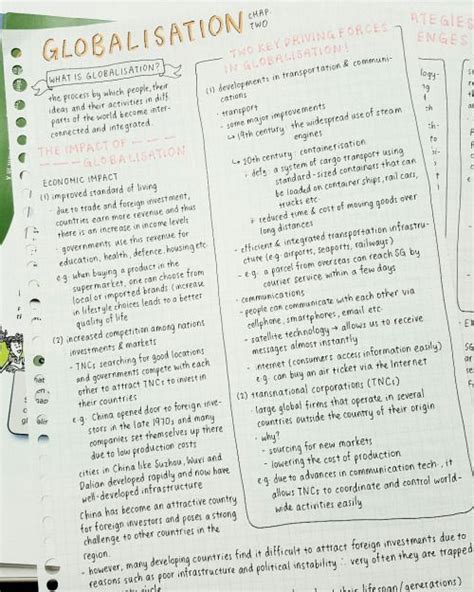 GLOBALISATION
CHAP.
TWO
WHAT IS GLOBALISATION?
the process by which people, their
ideas and their activities in diff.
parts of the world become inter-
connected and integrated.
THE IMPACT OF
GLOBALISATION
ECONOMIC IMPACT
(1) improved standard of living
- due to trade and foreign investment,
countries earn more revenue and thus
there is an increase in income levels
- governments use this revenue for
education, health, defence, housing etc.
e.g. when buying a product in the
supermarket, one can choose from
local or imported brands (increase
in lifestyle choices leads to a better
quality of life
(2) increased competition among nations
investments & markets
- TNCs searching for good locations
and governments compete with each
other to attract TNCs to invest in
their countries
e.g. China opened door to foreign inve-
stors in the late 1970s and many
companies set themselves up there
due to low production costs
cities in China like Suzhou, Wuxi and
Dalian developed rapidly and now have
well-developed infrastructure
China has become an attractive country
for foreign investors and poses a strong
challenge to other countries in the
region.
- however, many developing countries find it difficult to attract foreign investments due to
reasons such as poor infrastructure and political instability ∴ very often they are trapped
TWO KEY DRIVING FORCES
IN GLOBALISATION!
(1) developments in transportation & communi-
cations
- transport
- some major improvements
↳ 19th century: the widespread use of steam
engines
↳ 20th century: containerisation
+ defs: a system of cargo transport using
standard-sized containers that can
be loaded on container ships, rail cars,
trucks etc.
+ reduced time & cost of moving goods over
long distances
- efficient & integrated transportation infrastruc-
ture (e.g. airports, seaports, railways)
- e.g. a parcel from overseas can reach SG by
courier service within a few days
- communications
- people can communicate with each other via
cellphone, smartphones, email etc.
- satellite technology → allows us to receive
messages almost instantly
- internet (consumers access information easily)
- e.g. can buy an air ticket via the Internet
(2) transnational corporations (TNCs)
- large global firms that operate in several
countries outside the country of their origin
- why?
- sourcing for new markets
- lowering the cost of production
e.g. due to advances in communication tech., it
allows TNCs to coordinate and control world-
wide activities easily